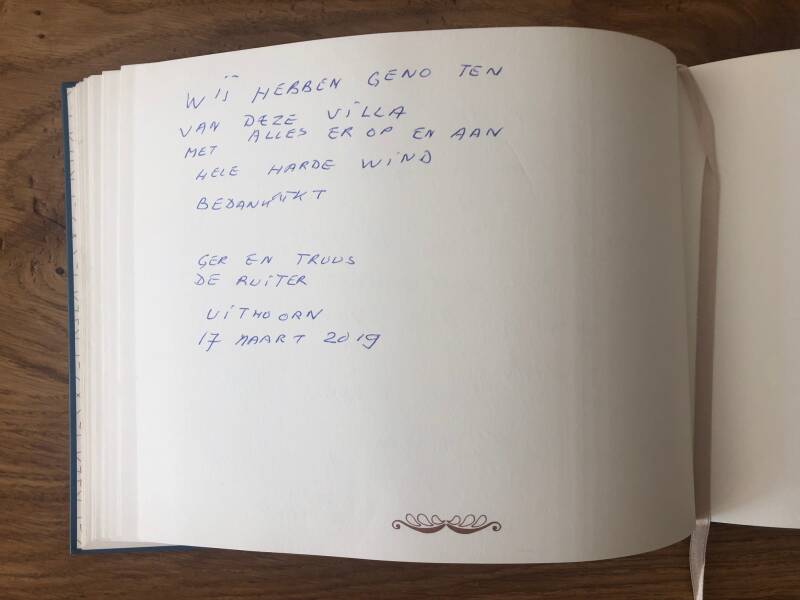 WIJ HEBBEN GENOTEN
VAN DEZE VILLA
MET ALLES ER OP EN AAN
HELE HARDE WIND
BEDANKT
GER EN TRUUS
DE RUITER
UITHOORN
17 MAART 2019